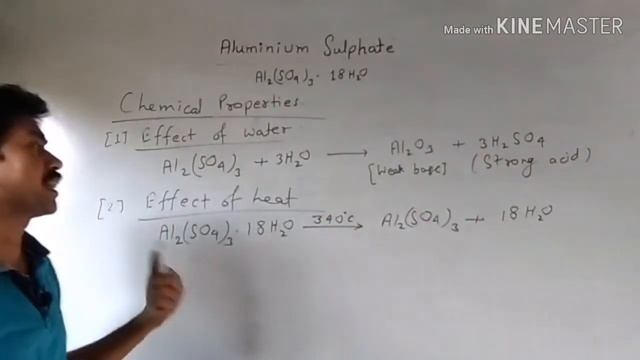 Made with KINEMASTER
Aluminium Sulphate
Al₂(SO₄)₃ · 18H₂O
Chemical Properties
[1] Effect of water
Al₂(SO₄)₃ + 3H₂O ⟶ Al₂O₃ + 3H₂SO₄
[Weak base] (Strong acid)
[2] Effect of heat
Al₂(SO₄)₃ · 18H₂O 340°C ⟶ Al₂(SO₄)₃ + 18H₂O